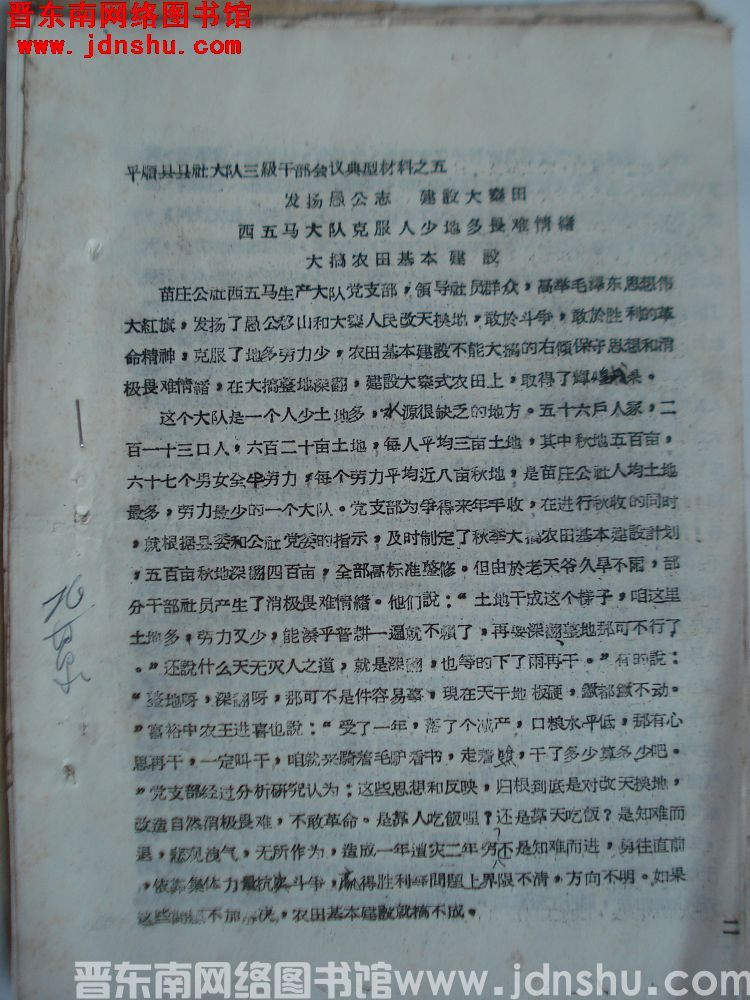 晋东南网络图书馆
www.jdnshu.com
平順县县社大队三級干部会议典型材料之五
发扬愚公志 建設大寨田
西五马大队克服人少地多畏难情緒
大搞农田基本建設
苗庄公社西五马生产大队党支部,領导社员群众,高举毛泽东思想伟
大紅旗,发扬了愚公移山和大寨人民改天换地,敢於斗争,敢於胜利的革
命精神,克服了地多劳力少,农田基本建設不能大搞的右傾保守思想和消
极畏难情緒,在大搞整地深翻,建設大寨式农田上,取得了輝煌成果。
这个大队是一个人少土地多,水源很缺乏的地方。五十六戶人家,二
百一十三口人,六百二十亩土地,每人平均三亩土地,其中秋地五百亩,
六十七个男女全半劳力,每个劳力平均近八亩秋地,是苗庄公社人均土地
最多,劳力最少的一个大队。党支部为争得来年丰收,在进行秋收的同时
,就根据县委和公社党委的指示,及时制定了秋季大搞农田基本建設計划
,五百亩秋地深翻四百亩,全部高标准整修。但由於老天爷久旱不雨,部
分干部社员产生了消极畏难情緒。他们說:“土地干成这个样子,咱这里
土地多,劳力又少,能湊乎普耕一遍就不賴了,再要深翻整地那可不行了
。”还說什么天无灭人之道,就是深翻,也等的下了雨再干。”有的說:
“整地呀,深翻呀,那可不是件容易事,現在天干地板硬,鐝都鐝不动。
”富裕中农王进喜也說:“受了一年,落了个减产,口粮水平低,那有心
思再干,一定叫干,咱就来騎着毛驴看书,走着瞧,干了多少算多少吧。
”党支部经过分析研究认为:这些思想和反映,归根到底是对改天换地,
改造自然消极畏难,不敢革命。是靠人吃飯哩?还是靠天吃飯?是知难而
退,悲观洩气,无所作为,造成一年遭灾二年穷?还是知难而进,勇往直前
,依靠集体力量抗灾斗争,贏得胜利等問題上界限不清,方向不明。如果
这些問題不加解决,农田基本建設就搞不成。
二
晋东南网络图书馆www.jdnshu.com